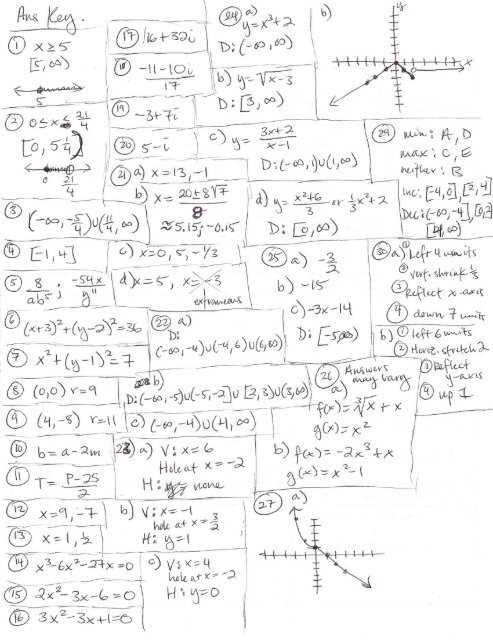 Ans Key.
① x ≥ 5
[5, ∞)
5
② 0 ≤ x ≤ 21/4
[0, 5 1/4)
0 21/4
③ (-∞, -5/4)∪(11/4, ∞)
④ [-1, 4]
⑤ 8/ab⁵ ; -54x/y¹¹
⑥ (x+3)²+(y-2)²=36
⑦ x²+(y-1)²=7
⑧ (0,0) r=9
⑨ (4,-8) r=11
⑩ b=a-2m
⑪ T= P-25/2
⑫ x=9,-7
⑬ x=1, ½
⑭ x³-6x²-27x=0
⑮ 2x²-3x-6=0
⑯ 3x²-3x+1=0
⑰ 16+32i
⑱ -11-10i/17
⑲ -3+7i
⑳ 5-i
㉑ a) x=13, -1
b) x= 20±8√7/8
≈5.15, -0.15
c) x=0, 5, -1/3
d) x=5, x=-3
extraneous
㉒ a)
D:
(-∞,-4)∪(-4,6)∪(6,∞)
b)
D:(-∞,-5)∪(-5,-2]∪[2,3)∪(3,∞)
c) (-∞,-4)∪(4,∞)
㉓ a) V: x=6
Hole at x=-2
H: none
b) V: x=-1
hole at x=3/2
H: y=1
c) V: x=4
hole at x=-2
H: y=0
㉔ a)
y=x³+2
D: (-∞,∞)
b) y=√x-3
D: [3,∞)
c) y= 3x+2/x-1
D:(-∞,1)∪(1,∞)
d) y= x²+6/3 or 1/3x²+2
D: [0,∞)
㉕ a) -3/2
b) -15
c) -3x-14
D: [-5,∞)
㉖ Answers
may vary
a)
f(x)=∛x + x
g(x)=x²
b) f(x)=-2x³+x
g(x)=x²-1
㉗ a)
b)
y
x
㉙ min: A, D
max: C, E
neither: B
Inc: [-4,0], [2,4]
Dec: (-∞,-4], [0,2]
[4,∞)
㉚ a) ① Left 4 units
② vert. shrink 1/3
③ Reflect x-axis
④ down 7 units
b) ① left 6 units
② Horiz. stretch 2
③ Reflect
y-axis
④ up 1